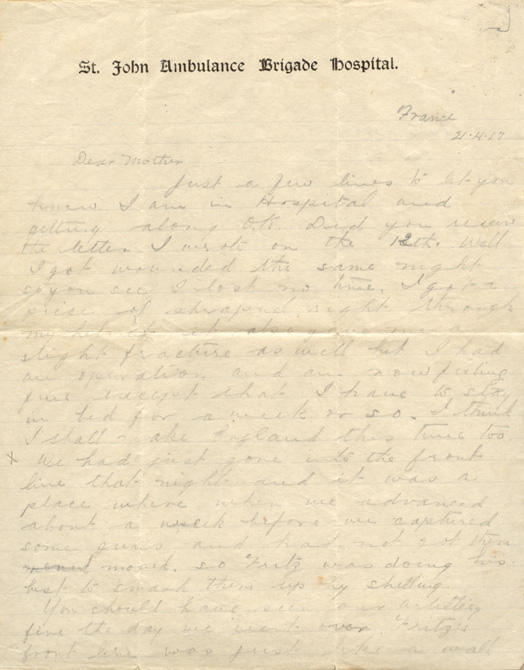 St. John Ambulance Brigade Hospital.
France
21.4.17
Dear Mother
Just a few lines to let you
know I am in Hospital and
getting along O.K. Did you receive
the letter I wrote on the 12th. Well
I got wounded the same night
so you see I lost no time. I got a
piece of shrapnel right through
my it also gave me a
slight fracture as well but I had
an operation and am now feeling
fine except that I have to stay
in bed for a week or so. I think
I shall make England this time too
X We had just gone into the front
line that night and it was a
place where when we advanced
about a week before we captured
some guns and had not got them
moved. so Fritz was doing his
best to smash them up by shelling.
You should have seen our artillery
fire the day we went over. Fritz's
front line was just like a wall